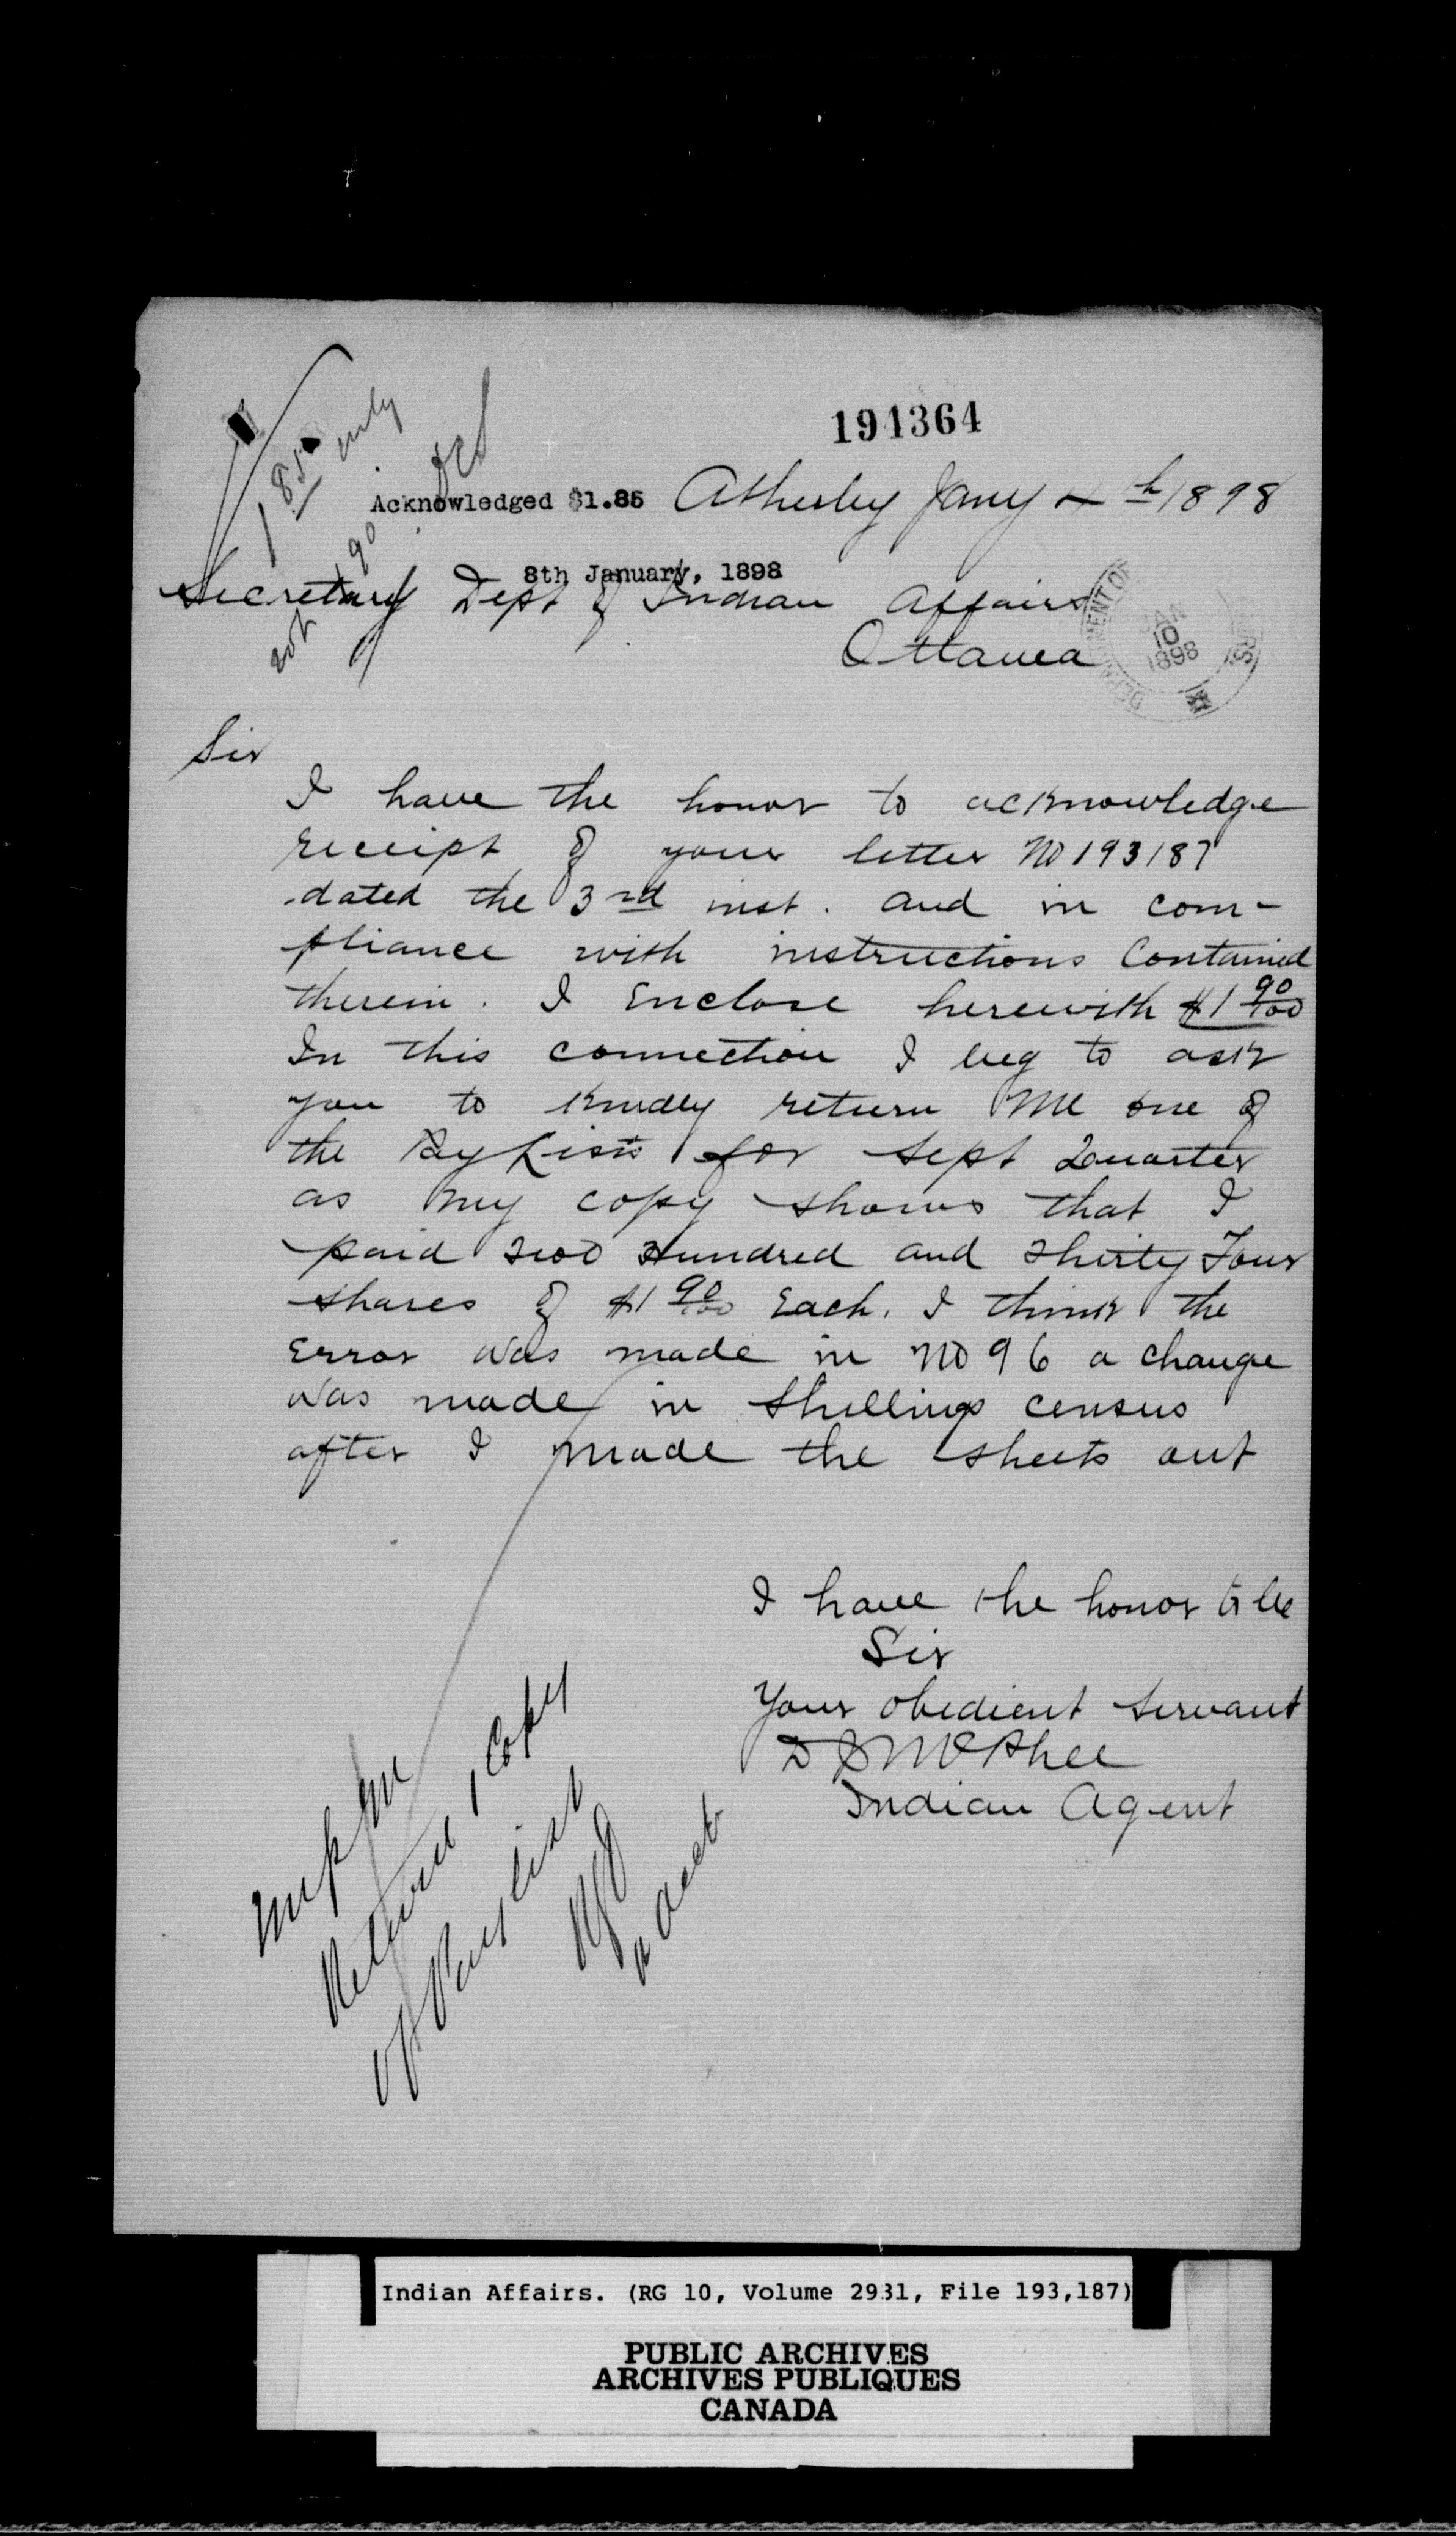 194364
1 85 only
not 90
Acknowledged $1.85
Atherley Jany 4th 1898
8th January, 1898
Secretary Dept of Indian Affairs
Ottawa
DEPARTMENT OF
JAN
10
1898
Sir
I have the honor to acknowledge
receipt of your letter No 193187
dated the 3rd inst. and in com-
pliance with instructions Contained
therein. I Enclose herewith $1 90/100
In this connection I beg to ask
you to kindly return me one of
the Pay Lists for Sept Quarter
as my copy shows that I
paid Two Hundred and Thirty Four
shares of $1 90/100 Each. I think the
Error was made in No 96 a change
was made in Shillings census
after I made the sheets out
I have the honor to be
Sir
Your obedient servant
D J McPhee
Indian Agent
Return 1 Copy
of Paylist
Acct
Indian Affairs. (RG 10, Volume 2931, File 193,187)
PUBLIC ARCHIVES
ARCHIVES PUBLIQUES
CANADA